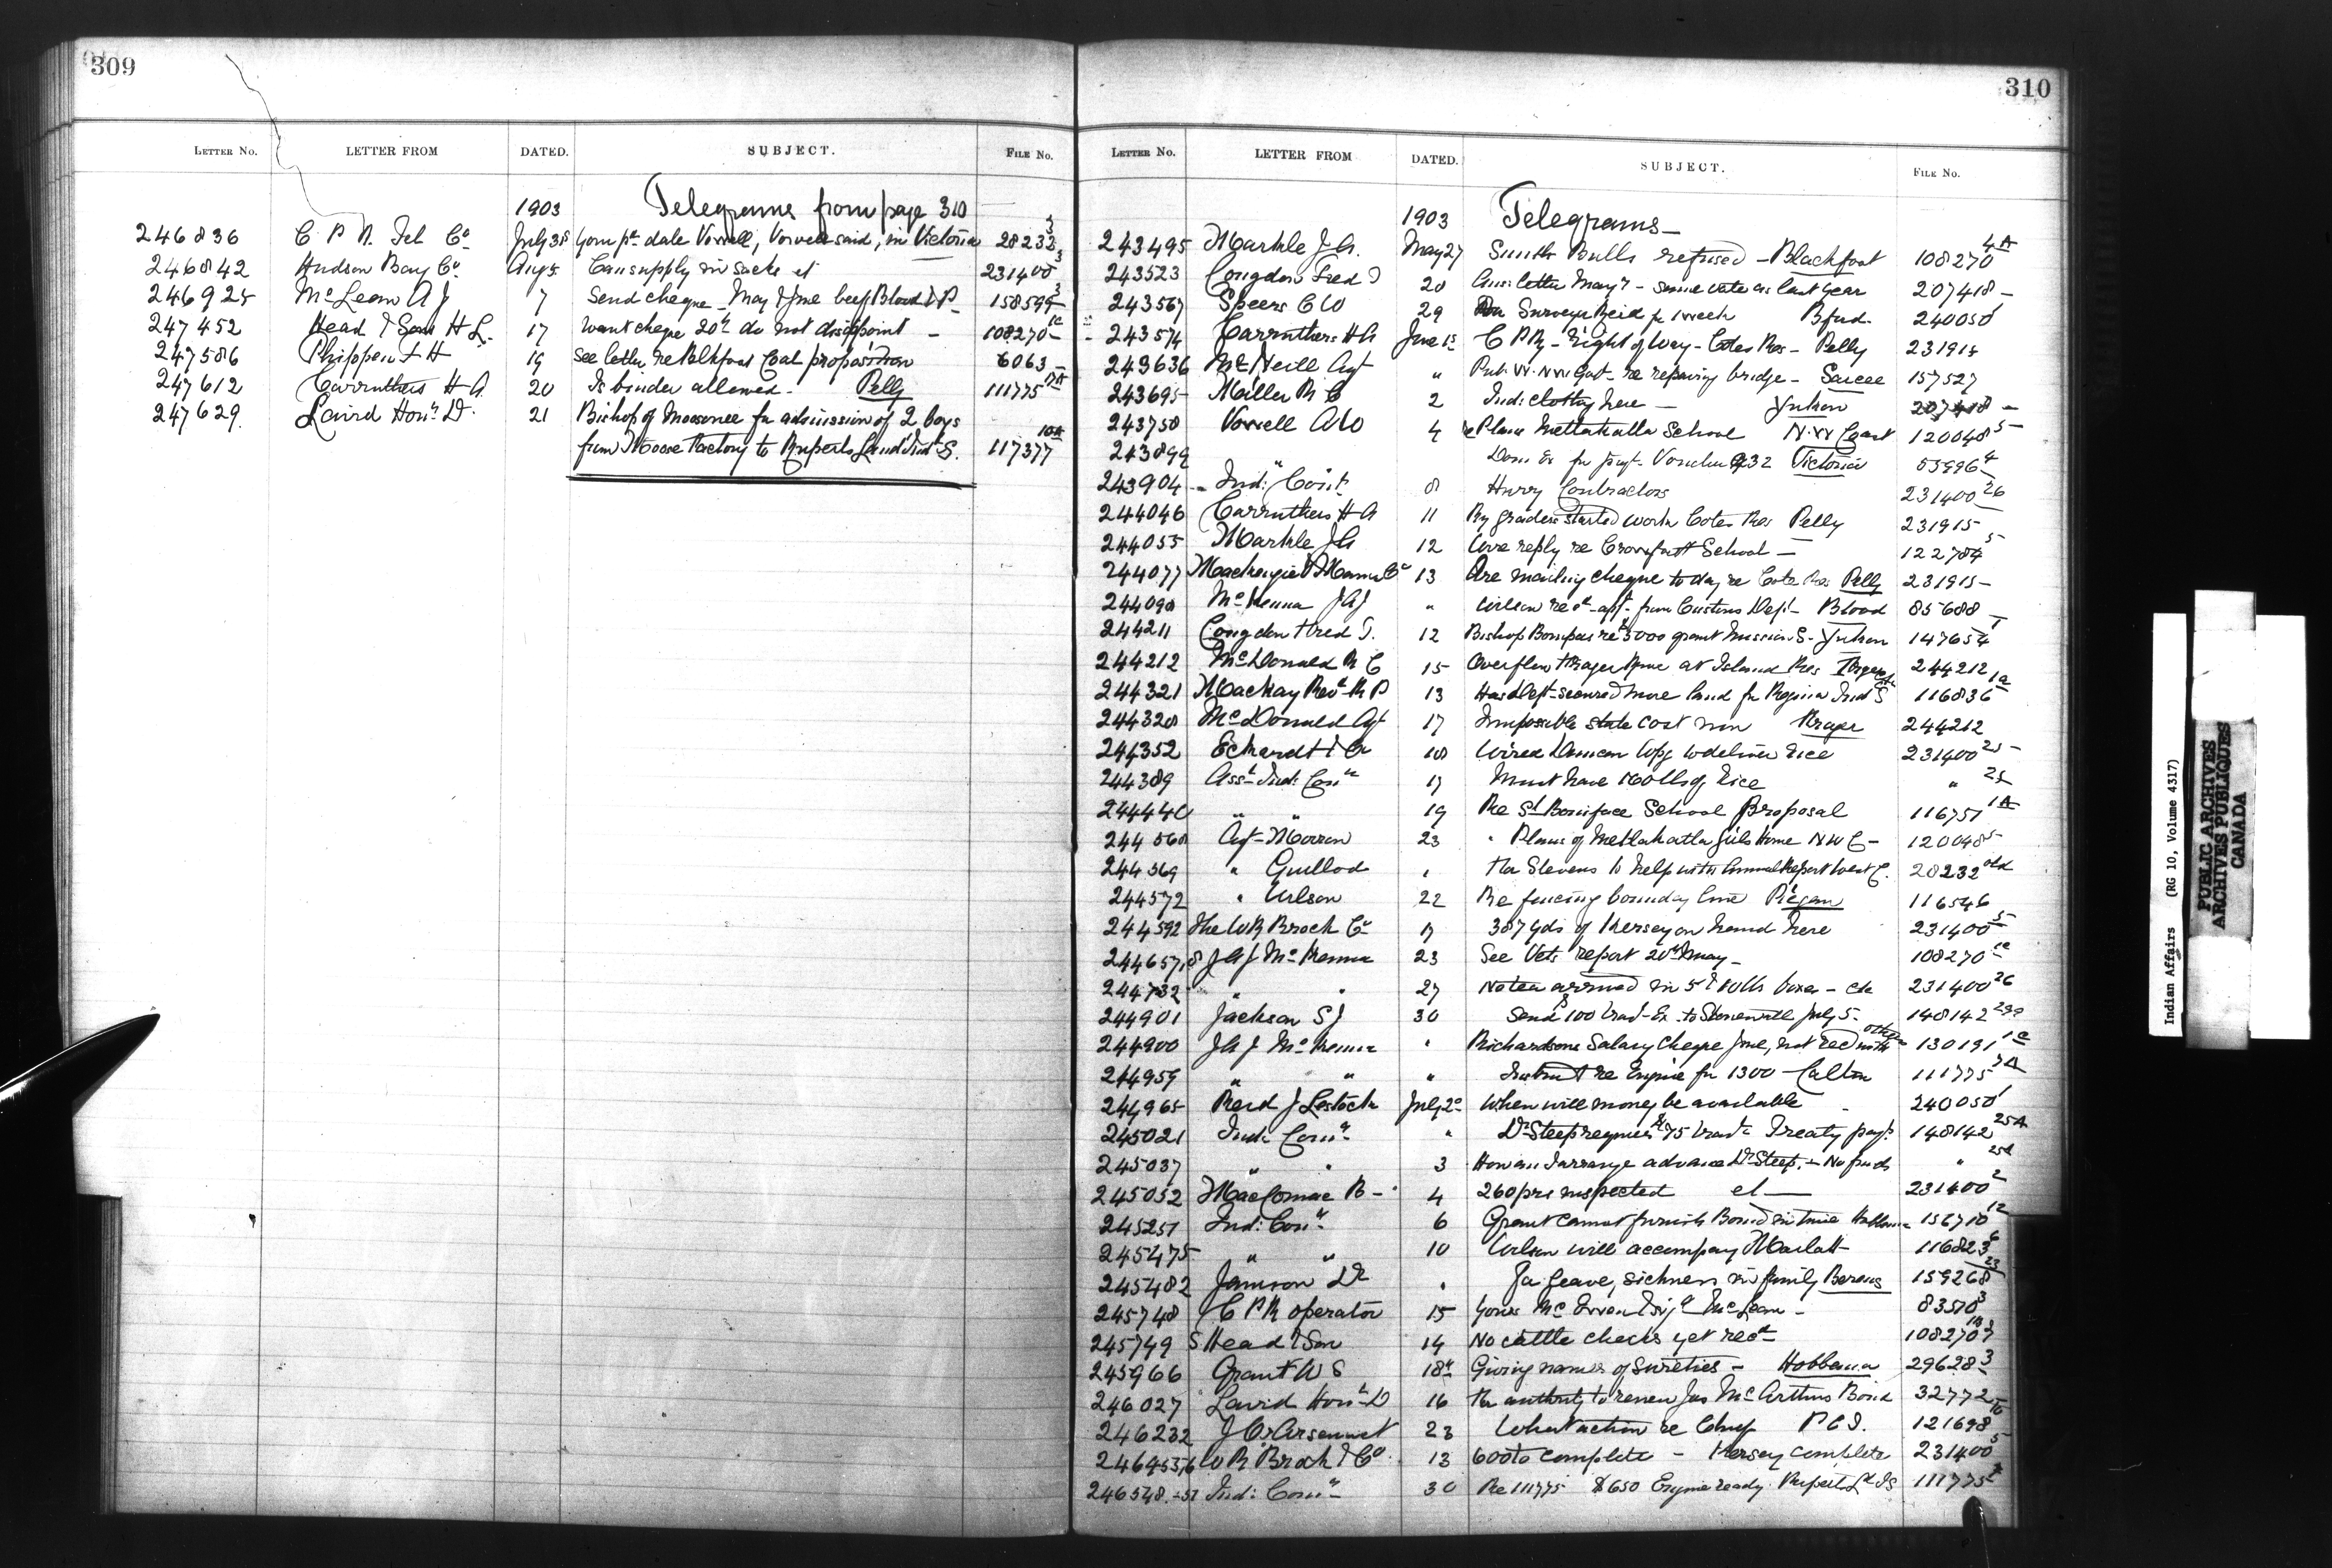 309
LETTER NO. LETTER FROM DATED. SUBJECT. FILE No.
1903 Telegrams from page 310
246836 C P R. Tel Co July 31 Your pt. date Vowell, Vowell said, in Victoria 28232 3
246842 Hudson Bay Co Aug 5 Can supply in sacks et 231400 3
246925 McLean A J 7 Send cheque May & June beef Blood & P 158599 3
247452 Head & Sons H L. 17 Want cheque 20th do not disappoint — 108270 1c
247586 Phippen F H 19 See letter re Blkfoot Coal proposition 6063 —
247612 Carruthers H A. 20 Is binder allowed - Pelly 111775
247629. Laird Honl D. 21 Bishop of Moosonee for admission of 2 boys
from Moose Factory to Ruperts Land Ind S. 117377 10A
310
LETTER No. LETTER FROM DATED. SUBJECT. FILE No.
1903 Telegrams —
243495 Markle J A. May 27 Smith Bulls refused — Blackfoot 108270 4A
243523 Congdon Fred T 20 Ansr letter May 7 - same rate as last year 207418 —
243567 Speers C W 29 Surveyor Reid for 1 week Bfud. 240050 1
243574 Carruthers H A June 1st C P Ry - Right of Way - Cotes Res - Pelly 231915
243636 McNeill Agt " Pub. W. NW Govt - re repairing bridge - Sarcee 157527
243695 Miller R C 2 Ind: clothing here — Yukon 207418 —
243758 Vowell A W 4 re Plans Mettakatla School N.W Coast 120048 5
243899 " Dom Ex for payt - Voucher 932 Victoria 55996 4
243904 Ind: Comr 8 Hurry Contractors 231400 26
244046 Carruthers H A 11 Ry graders started work Cotes Res Pelly 231915
244055 Markle J A 12 Wire reply re Crowfoot School — 122784 5
244077 Mackenzie & Mann Co 13 Are mailing cheque to day re Cote Res Pelly 231915 —
244090 McKenna J A J " Wilson recd appt. from Customs Dept - Blood 85688
244211 Congdon Fred T. 12 Bishop Bompas re $5000 grant Mission S - Yukon 147654 1
244212 McDonald R C 15 Overflow Fraser River at Island Res Fraser 244212
244321 Mackay Revd R P 13 Has Dept secured more land for Regina Ind S 116836 1a
244328 McDonald Agt 17 Impossible state cost now Fraser 244212
244352 Eckardt & Co 18 Wired Duncan Wpg to deliver rice 231400 25
244389 Asst Ind: Comr 17 Must have 160 lbs of rice " 25
244440 " " 19 Re St Boniface School Proposal 116751 1A
244568 Agt Morrow 23 " Plans of Metlakatla Girls Home N W C - 120048 5
244569 " Guillod " For Stevens to help with Annual Report West C. 28232 old
244572 " Wilson 22 Re fencing boundary line Piegan 116546
244592 The W R Brock Co 17 387 yds of Kersey on hand here 231400 5
244657,8 J A J McKenna 23 See Vets report 20th May — 108270 1c
244732 " " 27 No tea arrived in 5 & 10 lb boxes - etc 231400 26
244901 Jackson S J 30 Send $100 Trav-Ex. to Stonewall July 5. 148142
244900 J A J McKenna " Richardsons Salary cheque June, not recd with others 130191 1c
244959 " " " Instruct re Engine for 1300 — Calton 111775
244965 Reid J Lestock July 2 When will money be available 240050 1
245021 Ind: Comr " Dr Steep requires $75 Trav. Treaty payt. 148142 25A
245037 " " 3 How can I arrange advance Dr Steep. - No funds " 25A
245052 MacComac B - 4 260 prs inspected et — 231400 2
245251 Ind: Comr 6 Grant cannot furnish Bond in time Hobbema 156710 12
245475 " " 10 Wilson will accompany Marlatt 116823 6
245482 Jamison Dr " For leave, sickness in family Berens 159268 23
245748 C P R operator 15 Yours McIrven sigd McLean — 83510 3
245749 S Head & Son 14 No cattle checks yet recd 108270
245966 Grant W S 18th Giving names of Sureties — Hobbema 29628 3
246027 Laird Honl D 16 For authority to renew Jas McArthurs Bond 32772
246232 J O Arsenault 23 What action re Chief P E I. 121698 10
246453,6 W R Brock & Co. 13 600 to complete — Kersey complete 231400 5
246548.-51 Ind: Comr 30 Re 111775 $650 Engine ready. Rupert Ld IS 111775
Indian Affairs (RG 10, Volume 4317)
PUBLIC ARCHIVES
ARCHIVES PUBLIQUES
CANADA